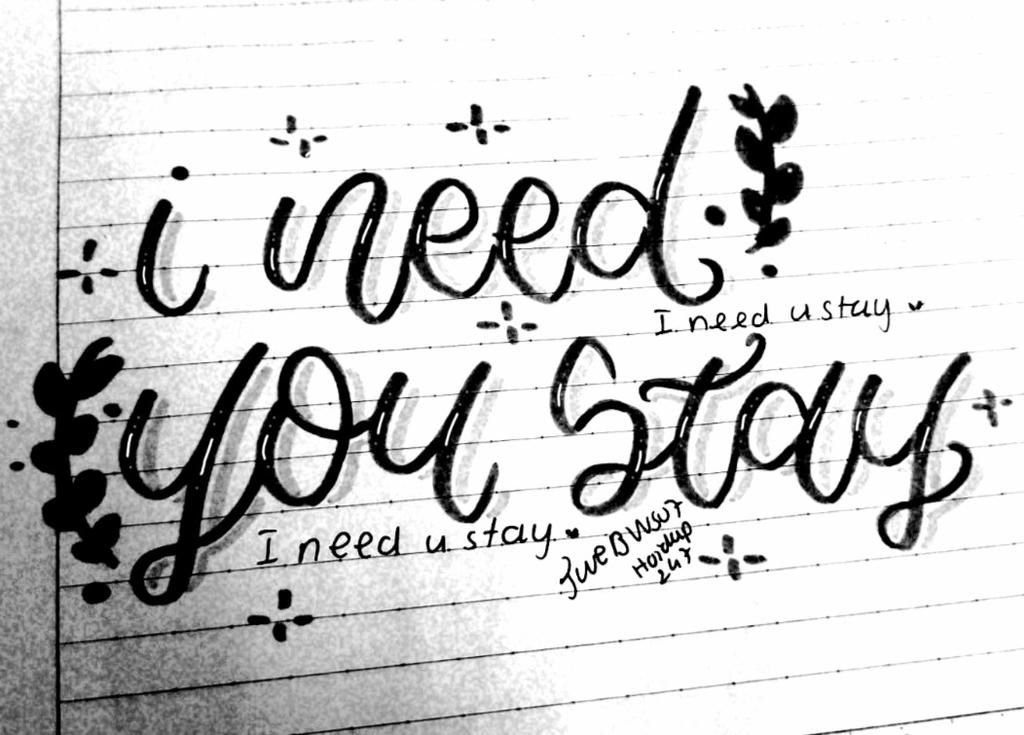 i need
I need u stay
you stay
I need u stay
247